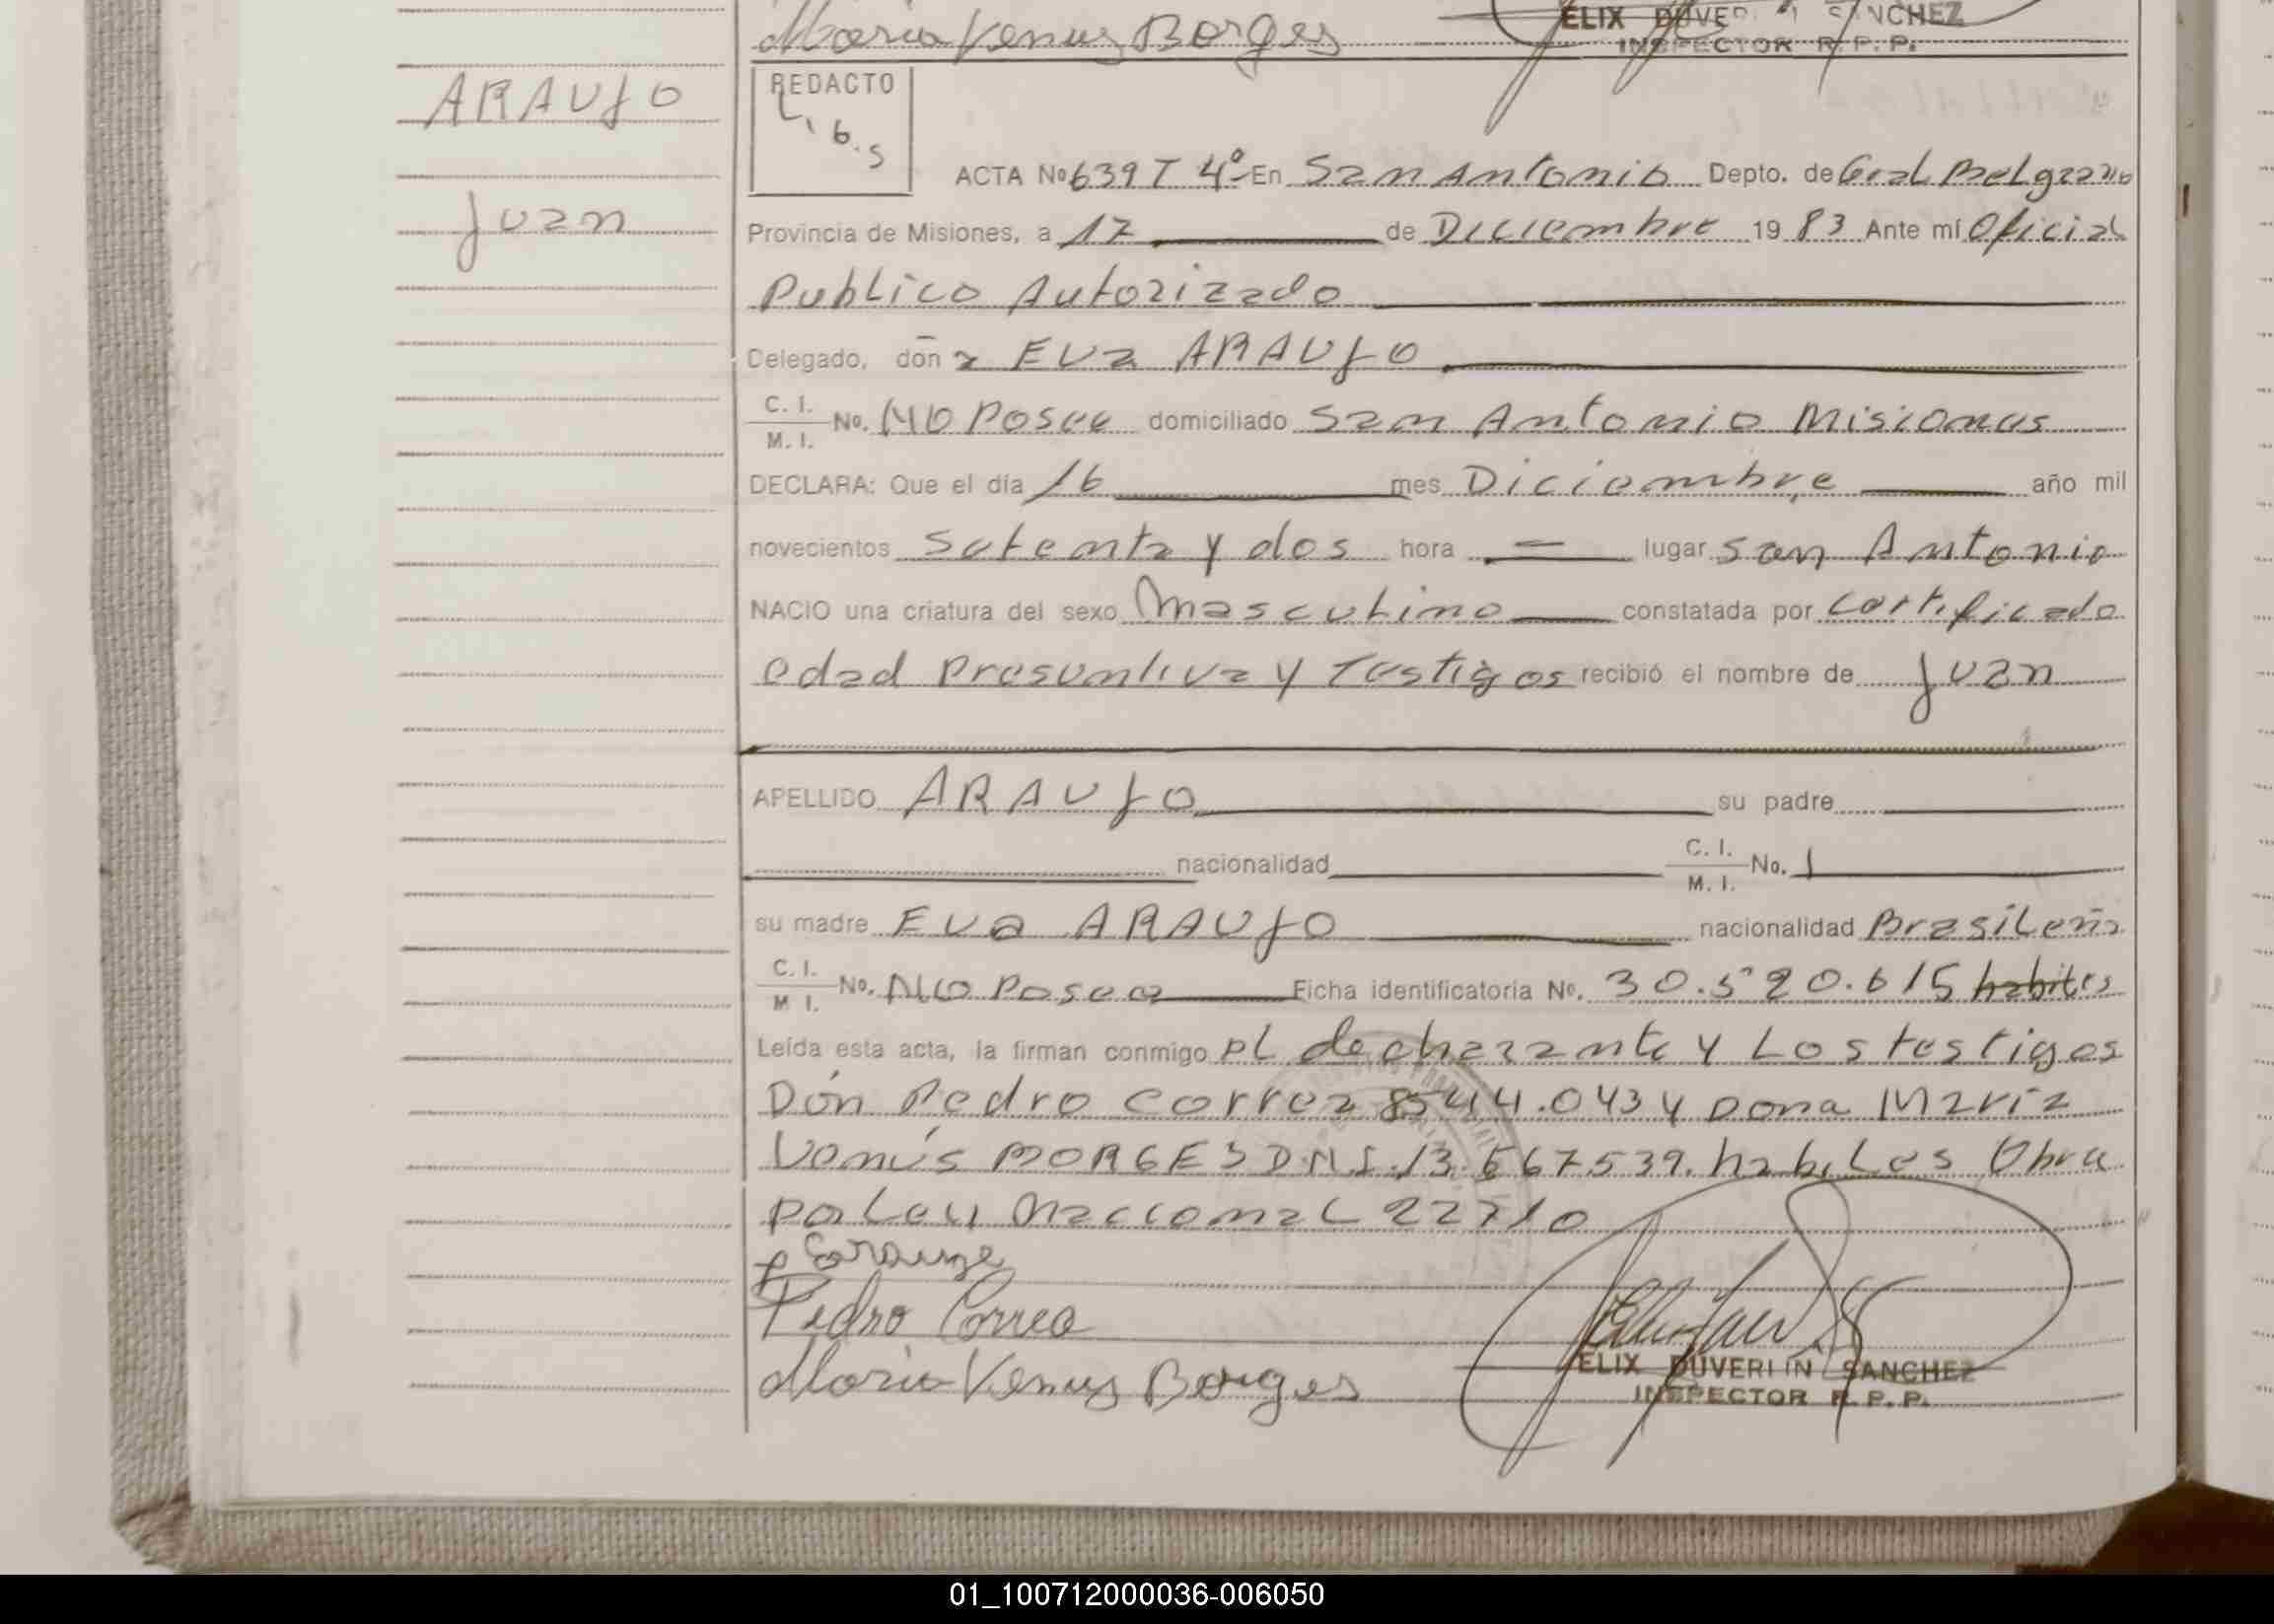 Maria Venus Borges
ELIX DUVER SANCHEZ
INSPECTOR R. P. P.
ARAUJO
Juan
REDACTO
L. b. s
ACTA No 639 T 4º En San Antonio Depto. de Gral Belgrano
Provincia de Misiones, a 17 de Diciembre 19 83 Ante mí Oficial
Publico Autorizado
Delegado, don a Eva ARAUJO
C. I. / M. I. No. No Posee domiciliado San Antonio Misiones
DECLARA: Que el día 16 mes Diciembre año mil
novecientos Setenta y dos hora = lugar San Antonio
NACIO una criatura del sexo Masculino constatada por Certificado
edad Presuntiva y Testigos recibió el nombre de Juan
APELLIDO ARAUJO su padre
nacionalidad C. I. / M. I. No.
su madre Eva ARAUJO nacionalidad Brasileña
C. I. / M I. No. No Posee Ficha identificatoria No. 30.520.615 habiles
Leída esta acta, la firman conmigo el declarante y Los testigos
Don Pedro Correa 8544.043 y Dona Maria
Venus BORGES D.N.I. 13.667539. habiles Obra
por Ley Nacional 22710
Pedro Correa
Maria Venus Borges
ELIX DUVERLIN SANCHEZ
INSPECTOR R. P. P.
01_100712000036-006050